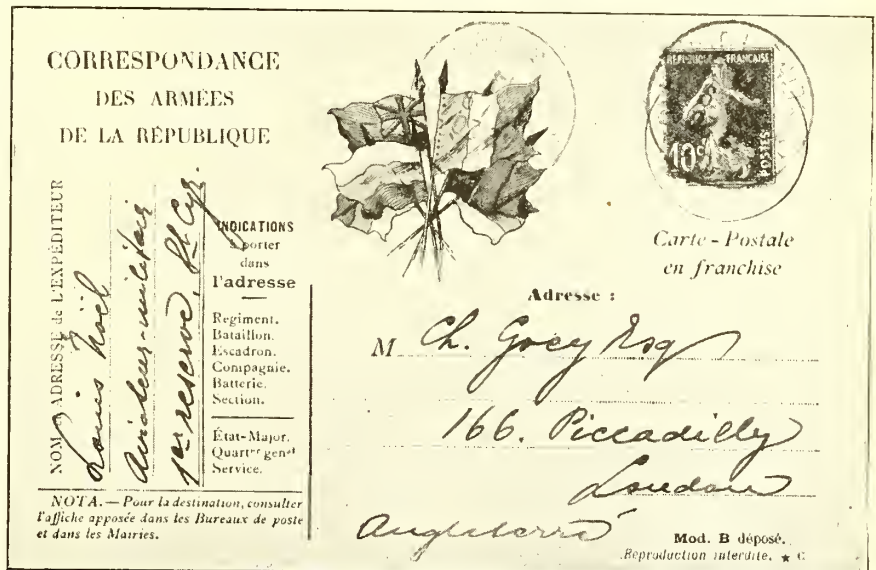 CORRESPONDANCE
DES ARMÉES
DE LA RÉPUBLIQUE
NOM ADRESSE de L'EXPÉDITEUR
Louis Noël
Aviateur-militair
1er reserve, St Cyr.
INDICATIONS
à porter
dans
l'adresse
Regiment.
Bataillon.
Escadron.
Compagnie.
Batterie.
Section.
État-Major.
Quartier genal
Service.
NOTA. — Pour la destination, consulter
l'affiche apposée dans les Bureaux de poste
et dans les Mairies.
REPUBLIQUE FRANCAISE
10c
POSTES
Carte-Postale
en franchise
Adresse :
M Ch. Grey Esq
166. Piccadilly
London
Angleterre
Mod. B déposé.
Reproduction interdite. ★ C